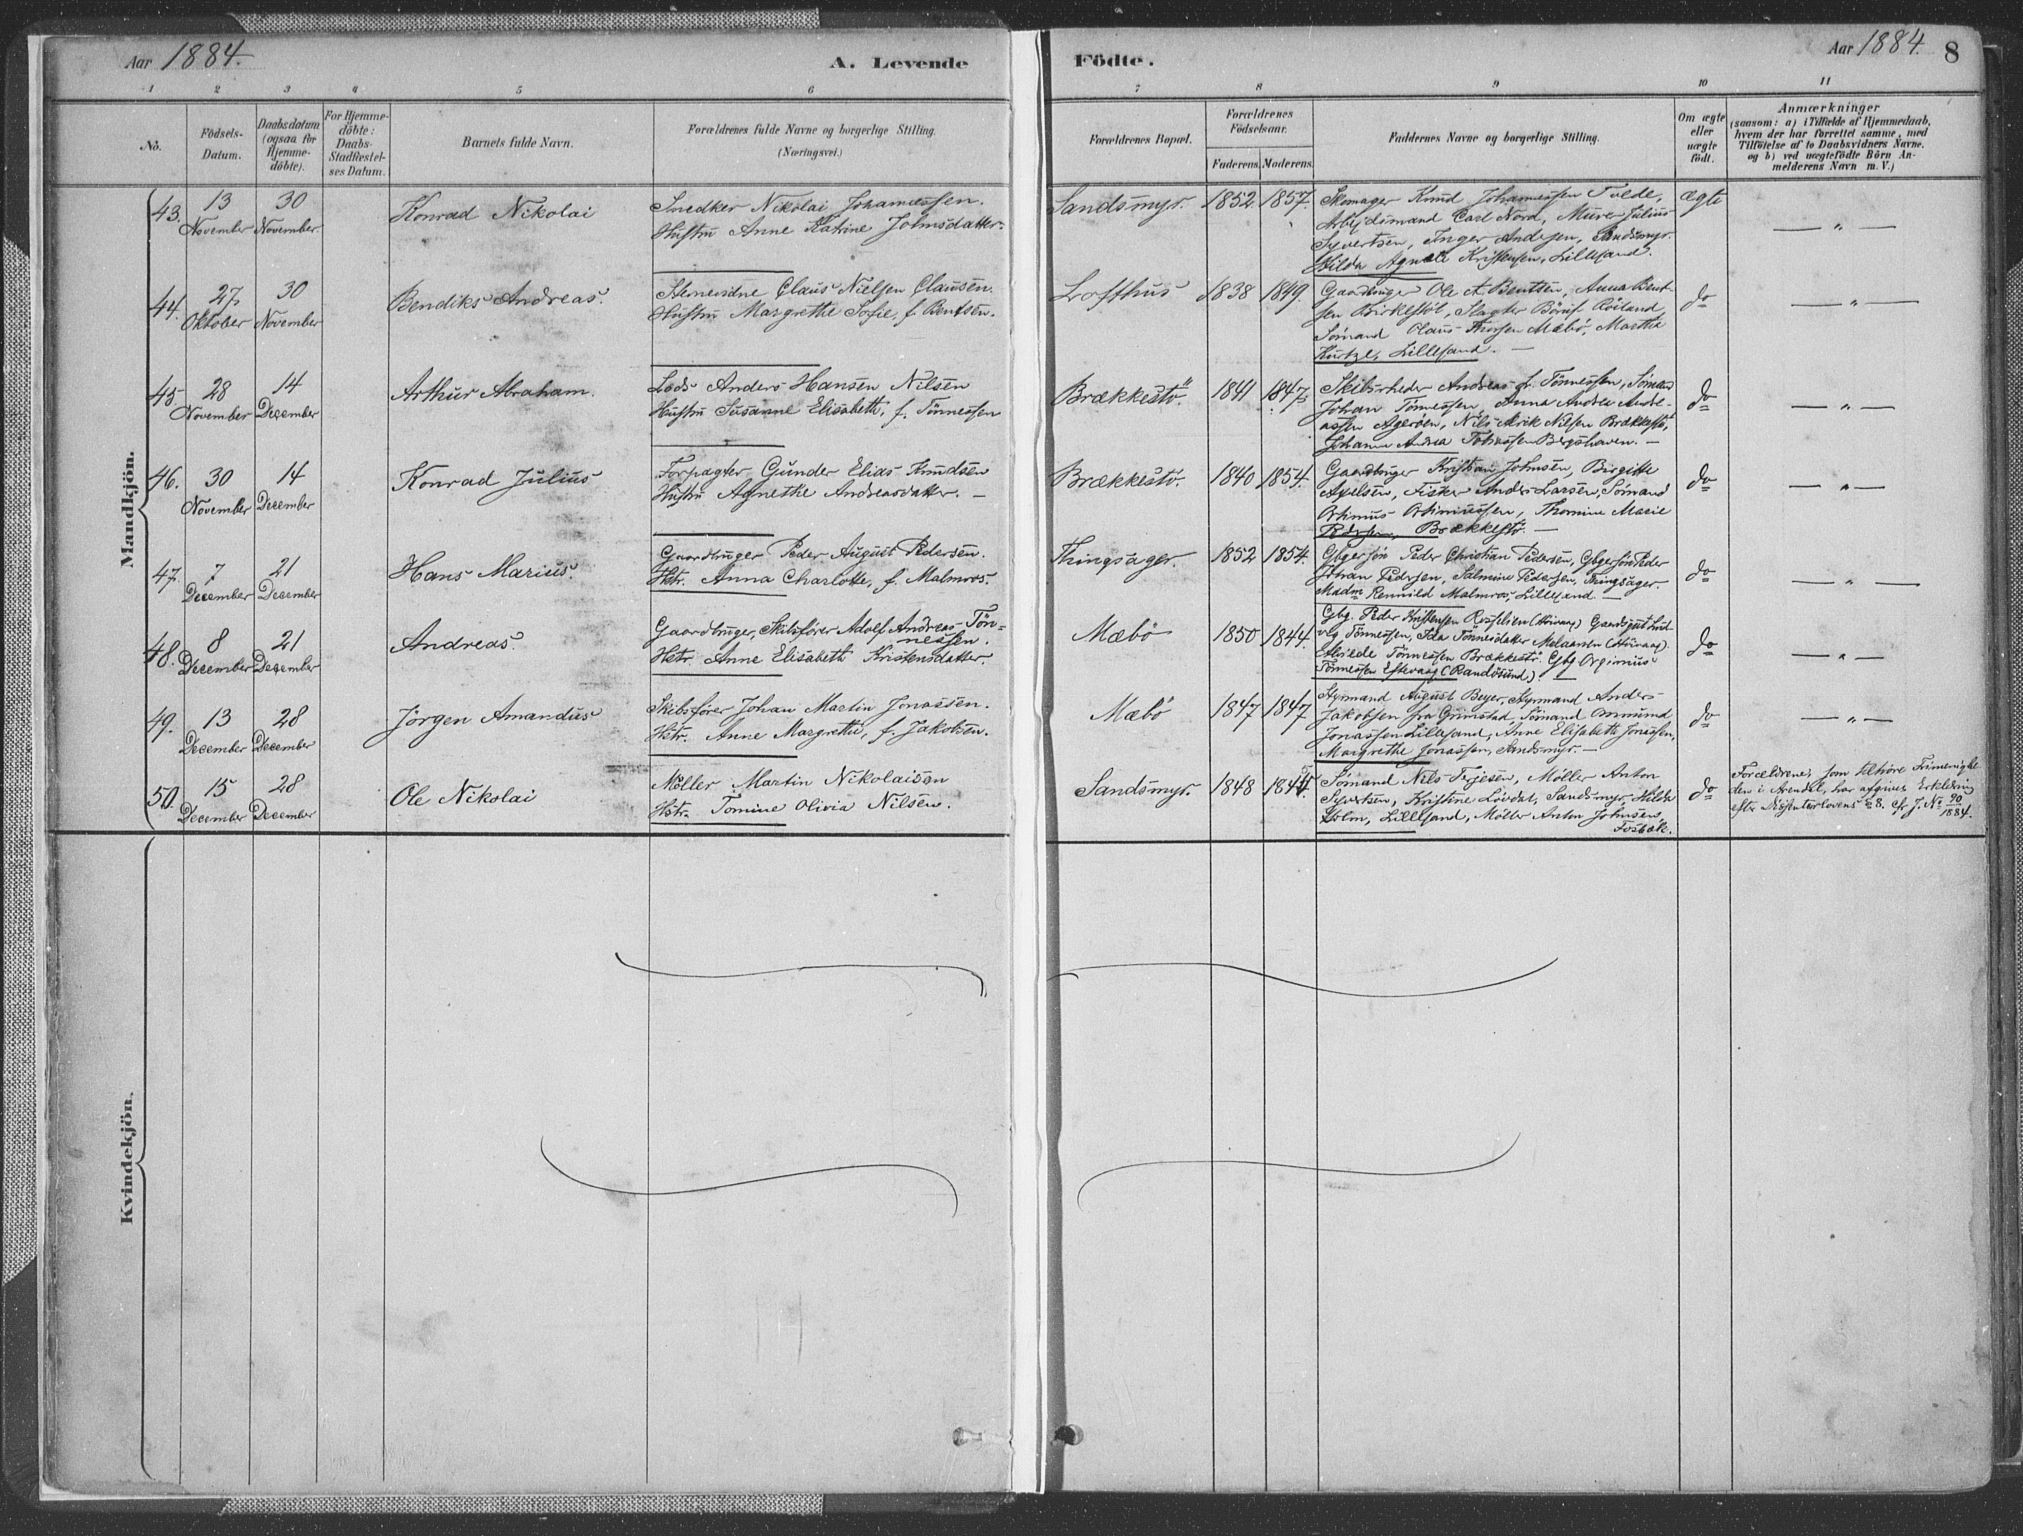 Aar 1884.
A. Levende
Födte.
Aar 1884
8
1 2 3 4 5 6 7 8 9 10 11
No.
Födsels-
Datum.
Daabsdatum
(ogsaa for
Hjemme-
döbte).
For Hjemme-
döbte:
Daabs-
Stadfæstel-
ses Datum.
Barnets fulde Navn.
Forældrenes fulde Navne og borgerlige Stilling.
(Næringsvei.)
Forældrenes Bopæl.
Forældrenes
Födselsaar.
Faderens. Moderens.
Faddernes Navne og borgerlige Stilling.
Om ægte
eller
uægte
født.
Anmærkninger
(saasom: a) i Tilfælde af Hjemmedaab,
hvem der har forrettet samme, med
Tilföielse af to Daabsvidners Navne,
og b) ved uægtefödte Börn An-
melderens Navn m. V.)
Mandkjön.
43. 13 November 30 November Konrad Nikolai
Snedker Nikolai Johannessen.
Hustru Anne Katrine Johnsdatter.
Sandsmyr. 1852 1857.
Skomager Knud Johannessen Tvede,
Arbejdsmand Carl Nord, Murer Julius
Syvertsen, Inger Andersen, Sandsmyr.
Hilda Agnete Kristensen, Lillesand.
Ægte
— " —
44. 27 Oktober 30 November Bendiks Andreas.
Claus Nielsen Clausen.
Hustru Margrethe Sofie, f. Bentsen.
Lofthus 1838 1849.
Gaardbruger Ole A. Bentsen, Anna Bent-
sen Birkestöl, Slagter Röiland,
Sömand Claus Thorsen Mæbö, Martha
Kurtze, Lillesand. —
do
— " —
45. 28 November 14 December Arthur Abraham.
Lods Anders Hansen Nilsen
Hustru Susanne Elisabeth, f. Tönnessen
Brækkestö. 1841 1847.
Skibsrheder Andreas Tönnessen, Sömand
Johan Tönnessen, Anna Andrea Andre-
assen Ageröen, Nils Nilsen Brækkestö,
Johanne Andrea Bergshaven. —
do
— " —
46. 30 November 14 December Konrad Julius
Forpagter Gunder Elias Knudsen
Hustru Agnethe Andreasdatter. —
Brækkestö. 1840 1854.
Gaardbruger Kristian Johnsen, Birgitte
Axelsen, Fisker Anders Larsen, Sömand
Thomine Marie
Pedersen, Brækkestö —
do
— " —
47. 7 December 21 December Hans Marius.
Gaardbruger Peder August Pedersen.
Hstr. Anna Charlotte, f. Malmros.
Thingsager. 1852 1854.
Gbgersön Peder Christian Pedersen, Gbgersön Peder
Johan Pedersen, Salmine Pedersen, Thingsager.
Madm Malmros, Lillesand. —
do
— " —
48. 8 December 21 December Andreas.
Gaardbruger, Skibsförer Adolf Andreas Tön-
nessen.
Hstr. Anne Elisabeth Kristensdatter.
Mæbö 1850 1844.
Gbg. Peder Kristensen
Tönnessen, Ida Tönnesdatter
Tönnessen Brækkestö. Gbg
Tönnessen (Randösund) —
do
— " —
49. 13 December 28 December Jörgen Amandus
Skibsförer Johan Martin Jonassen.
Hstr. Anne Margrethe, f. Jakobsen.
Mæbö 1847 1847
Styrmand August Beyer, Styrmand Anders
Jakobsen fra Grimstad, Sömand
Jonassen Lillesand, Anne Elisabeth Jonassen,
Margrethe Jonassen, Sandsmyr. —
do
— " —
50. 15 December 28 December Ole Nikolai
Möller Martin Nikolaisen
Hstr. Tomine Olivia Nilsen.
Sandsmyr. 1848
Sömand Nils Terjesen, Möller Anton
Syvertsen, Kristine Lövdal, Sandsmyr, Hilda
Lillesand, Möller Anton Johnsen,
Fosbæk.
do
Forældrene, som tilhöre Frimenighe
den i Arendal, har afgivet Erklæring
efter Dissenterlovens § 8. cfr J. No 90
1884.
Kvindekjön.